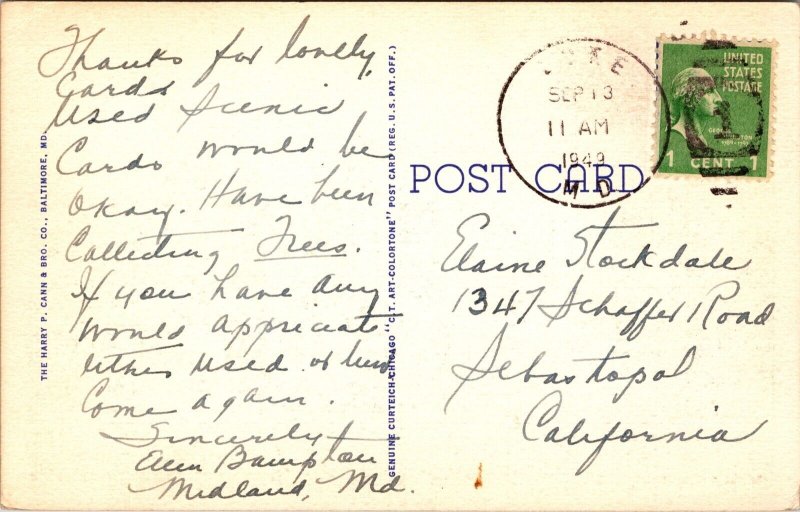 Thanks for lovely
Cards
Used Scenic
Cards would be
Okay. Have been
Collecting Trees.
If you have any
would appriciate
either used or new
Come again.
Sincerely
Ann Bampton
Midland, Md.
THE HARRY P. CANN & BRO. CO., BALTIMORE, MD.
GENUINE CURTEICH-CHICAGO "C.T. ART-COLORTONE" POST CARD (REG. U.S. PAT. OFF.)
POST CARD
LUKE
SEP 13
11 AM
1949
MD
UNITED
STATES
POSTAGE
1
1 CENT 1
Elaine Stockdale
1347 Schaffer Road
Sebastopol
California